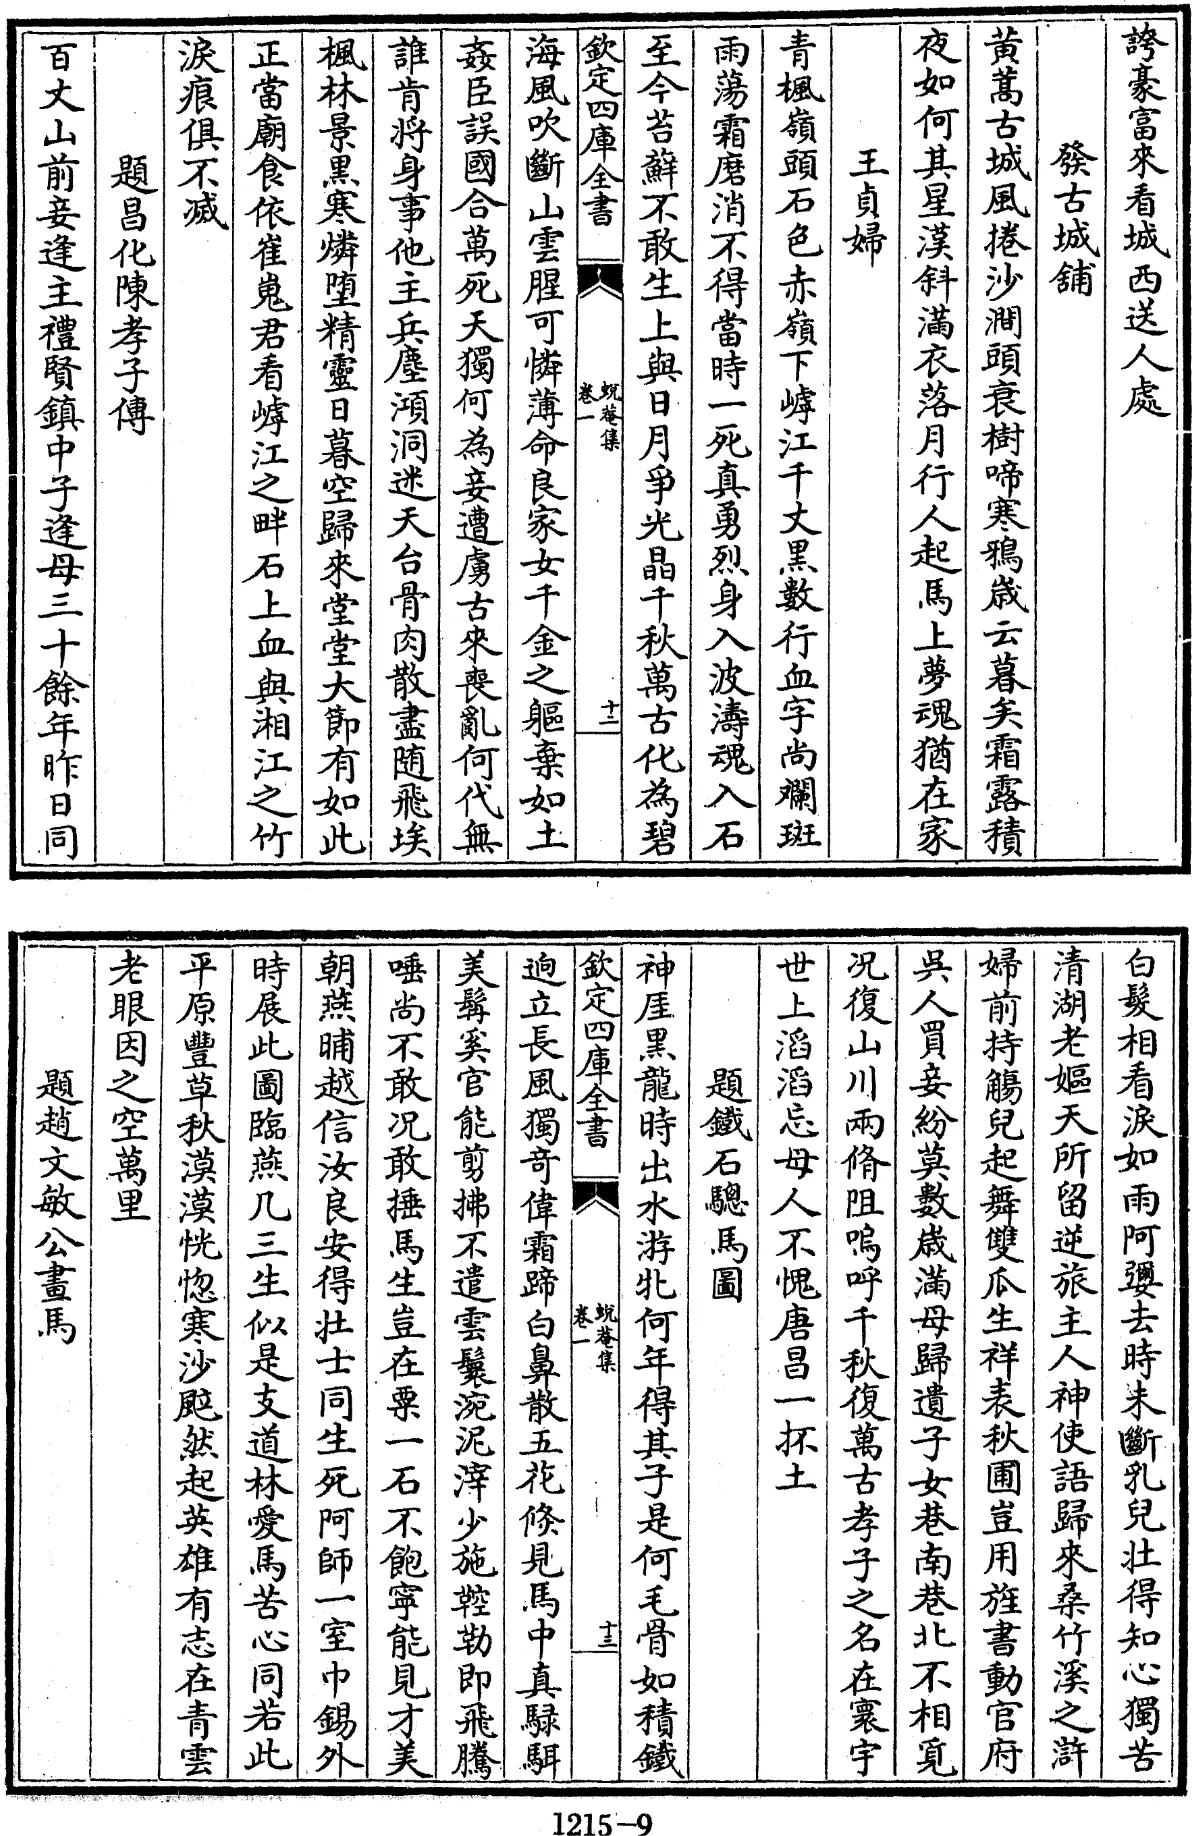 誇豪富來看城西送人處
發古城舖
黃蒿古城風捲沙澗頭衰樹啼寒鴉歲云暮矣霜露積
夜如何其星漢斜滿衣落月行人起馬上夢魂猶在家
王貞婦
青楓嶺頭石色赤嶺下嶀江千丈黑數行血字尚斕斑
雨蕩霜磨消不得當時一死真勇烈身入波濤魂入石
至今苔蘚不敢生上與日月爭光晶千秋萬古化為碧
欽定四庫全書
蛻菴集
卷一
十二
海風吹斷山雲腥可憐薄命良家女千金之軀棄如土
姦臣誤國合萬死天獨何為妾遭虜古來喪亂何代無
誰肯將身事他主兵塵澒洞迷天台骨肉散盡随飛埃
楓林景黑寒燐墮精靈日暮空歸來堂堂大節有如此
正當廟食依崔嵬君看嶀江之畔石上血與湘江之竹
淚痕俱不滅
題昌化陳孝子傳
百丈山前妾逢主禮賢鎮中子逢母三十餘年昨日同
白髮相看淚如雨阿㜷去時未斷乳兒壯得知心獨苦
清湖老嫗天所留逆旅主人神使語歸來桑竹溪之滸
婦前持觴兒起舞雙瓜生祥表秋圃豈用旌書動官府
吳人買妾紛莫數歲滿母歸遺子女巷南巷北不相覓
况復山川兩脩阻嗚呼千秋復萬古孝子之名在寰宇
世上滔滔忘母人不愧唐昌一抔土
題鐵石驄馬圖
神厓黑龍時出水游牝何年得其子是何毛骨如積鐵
欽定四庫全書
蛻菴集
卷一
十三
逈立長風獨竒偉霜蹄白鼻散五花倐見馬中真騄駬
美髯奚官能剪拂不遣雲鬟涴泥滓少施鞚勒即飛騰
唾尚不敢况敢捶馬生豈在粟一石不飽寧能見才美
朝燕晡越信汝良安得壮士同生死阿師一室巾錫外
時展此圖臨燕几三生似是支道林愛馬苦心同若此
平原豐草秋漠漠恍惚寒沙颭然起英雄有志在青雲
老眼因之空萬里
題趙文敏公畫馬
1215-9